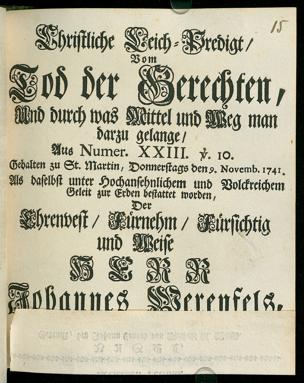 15
Christliche Leich-Predigt/
Vom
Tod der Gerechten,
Und durch was Mittel und Weg man
darzu gelange/
Aus Numer. XXIII. ℣. 10.
Gehalten zu St. Martin, Donnerstags den 9. Novemb. 1741.
Als daselbst unter Hochansehnlichem und Volckreichem
Geleit zur Erden bestattet worden,
Der
Ehrenvest/ Fürnehm/ Fürsichtig
und Weise
HERR
Johannes Werenfels,